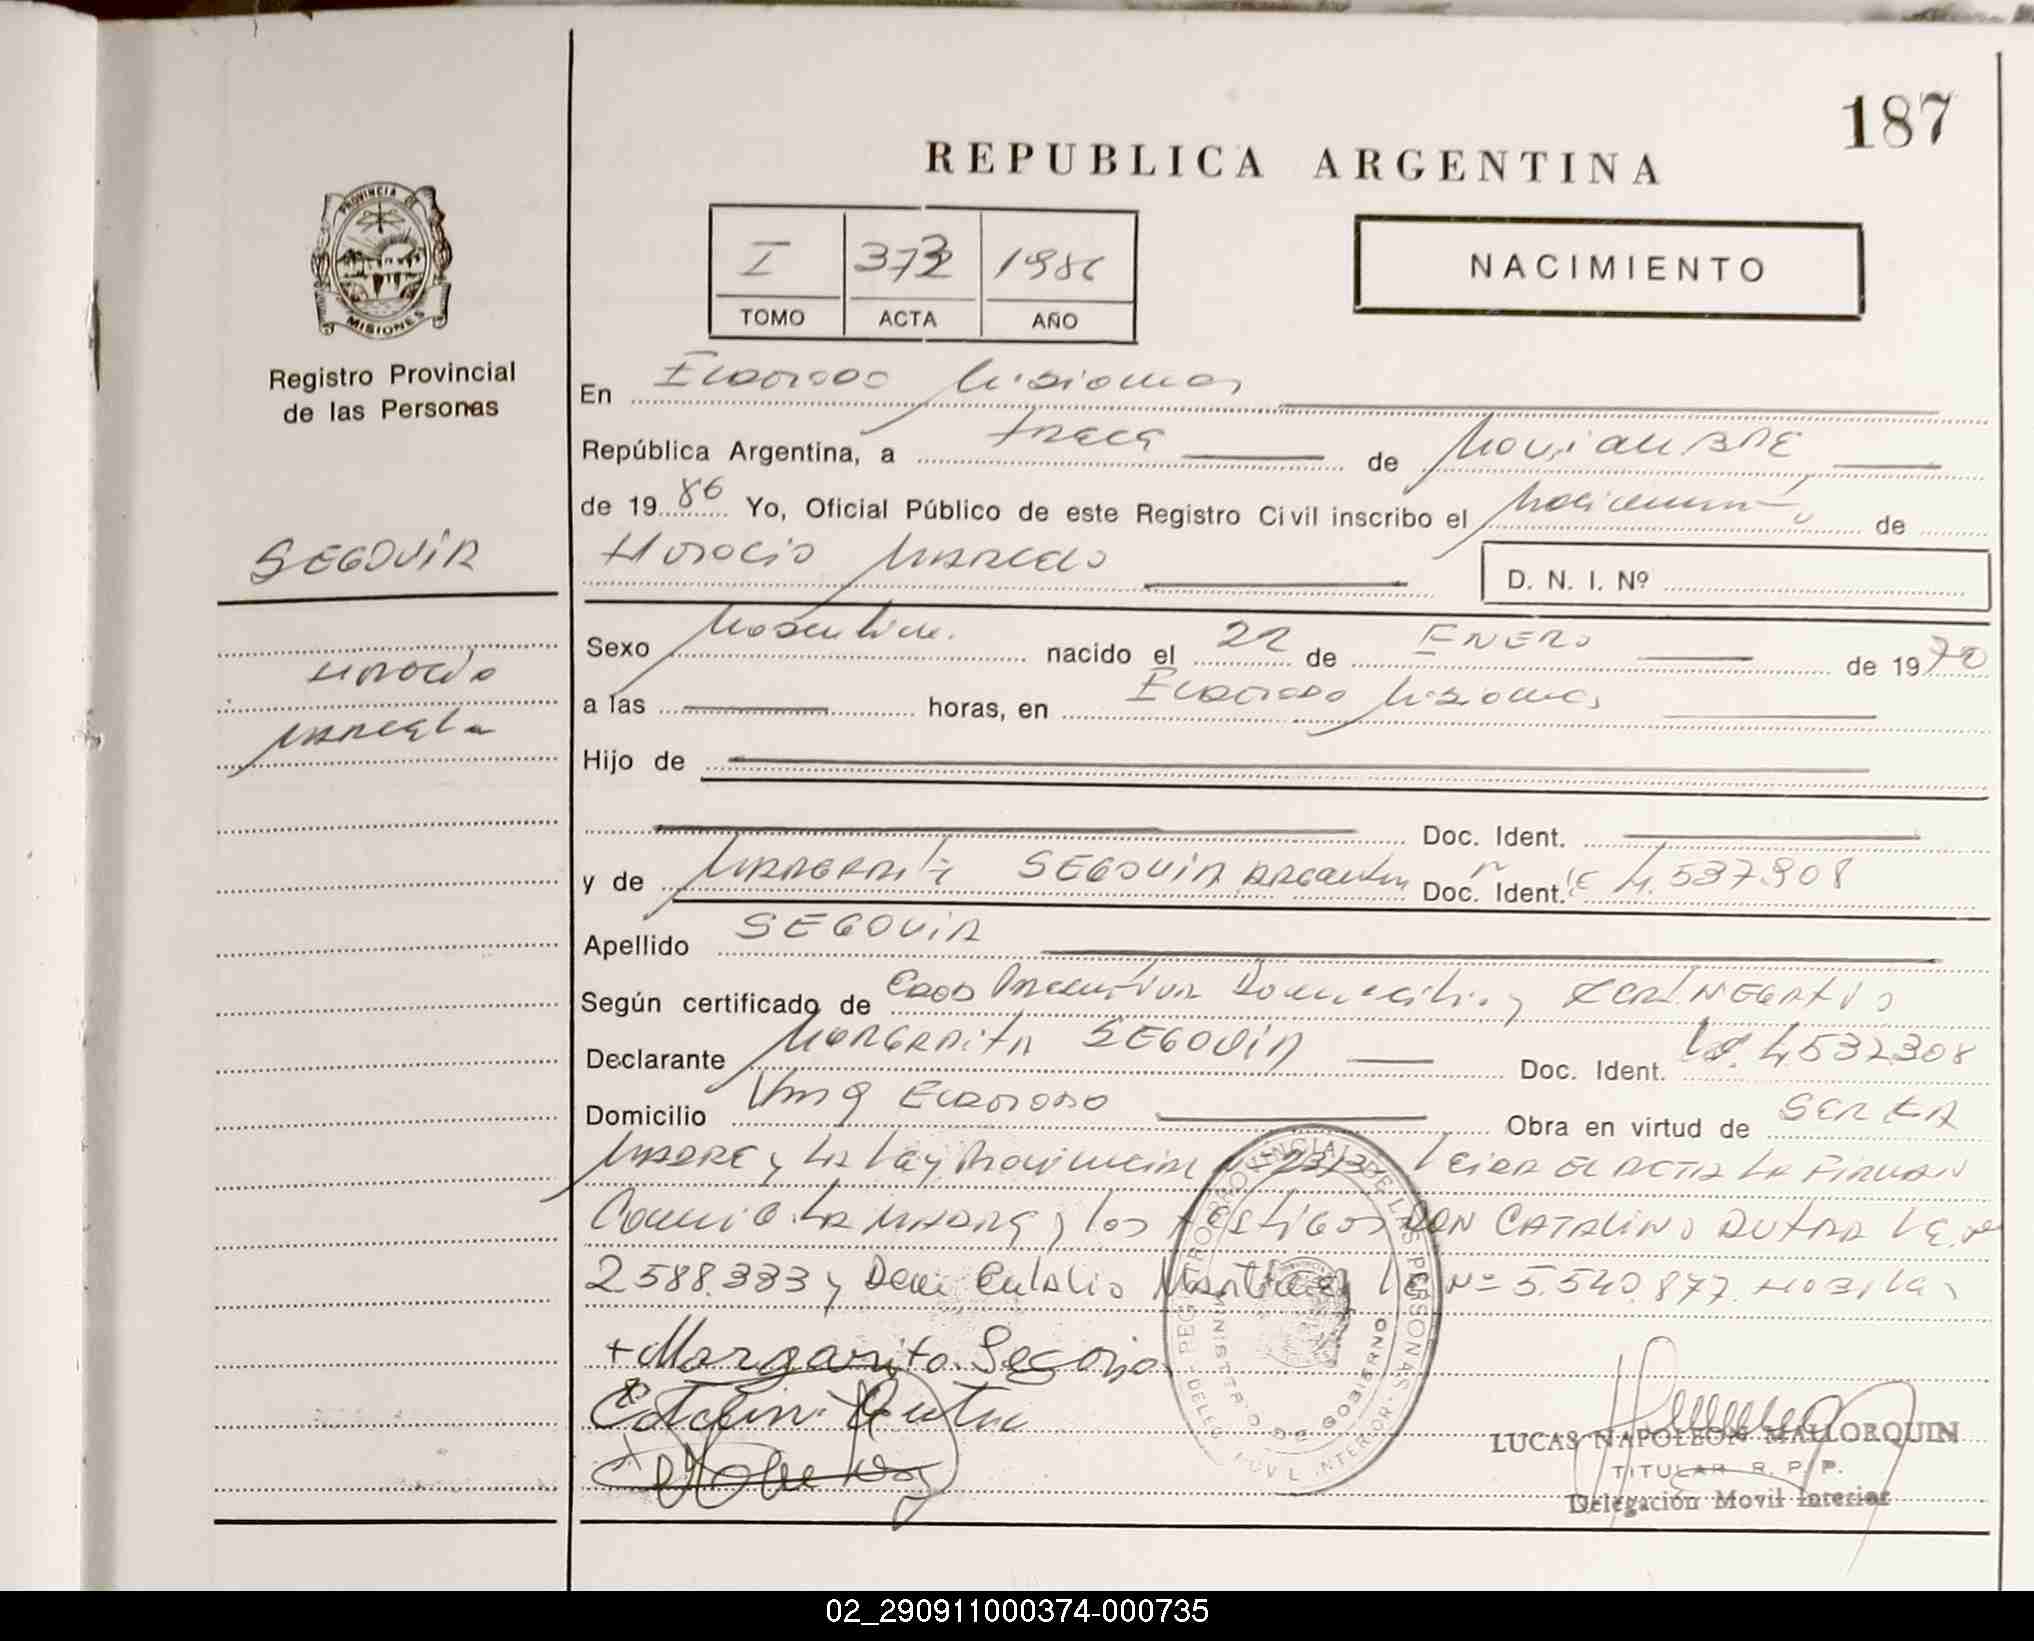 187
REPUBLICA ARGENTINA
PROVINCIA DE
MISIONES
I 373 1986
TOMO ACTA AÑO
NACIMIENTO
Registro Provincial
de las Personas
SEGOVIA
Horacio
Marcelo
En Eldorado Misiones
República Argentina, a trece de Noviembre
de 1986 Yo, Oficial Público de este Registro Civil inscribo el Nacimiento de
Horacio Marcelo
D. N. I. Nº
Sexo Masculino. nacido el 22 de ENERO de 1970
a las horas, en Eldorado Misiones
Hijo de
Doc. Ident.
y de Margarita SEGOVIA argentina Doc. Ident. 4.537.908
Apellido SEGOVIA
Según certificado de Domicilio y
Declarante MARGARITA SEGOVIA Doc. Ident.
Domicilio Eldorado Obra en virtud de SER LA
MADRE y la Ley Provincial Nº 2313 Leida el ACTA LA FIRMAN
Conmigo LA MADRE y los testigos DON CATALINO DUTRA L.E. nº
2588.333 y Don Eulalio L.E. Nº 5.540.877
+ Margarita Segovia
Catalino Dutra
REGISTRO PROVINCIAL DE LAS PERSONAS
MINISTERIO DE GOBIERNO
LUCAS NAPOLEON MALLORQUIN
TITULAR R. P. P.
Delegación Movil Interior
02_290911000374-000735